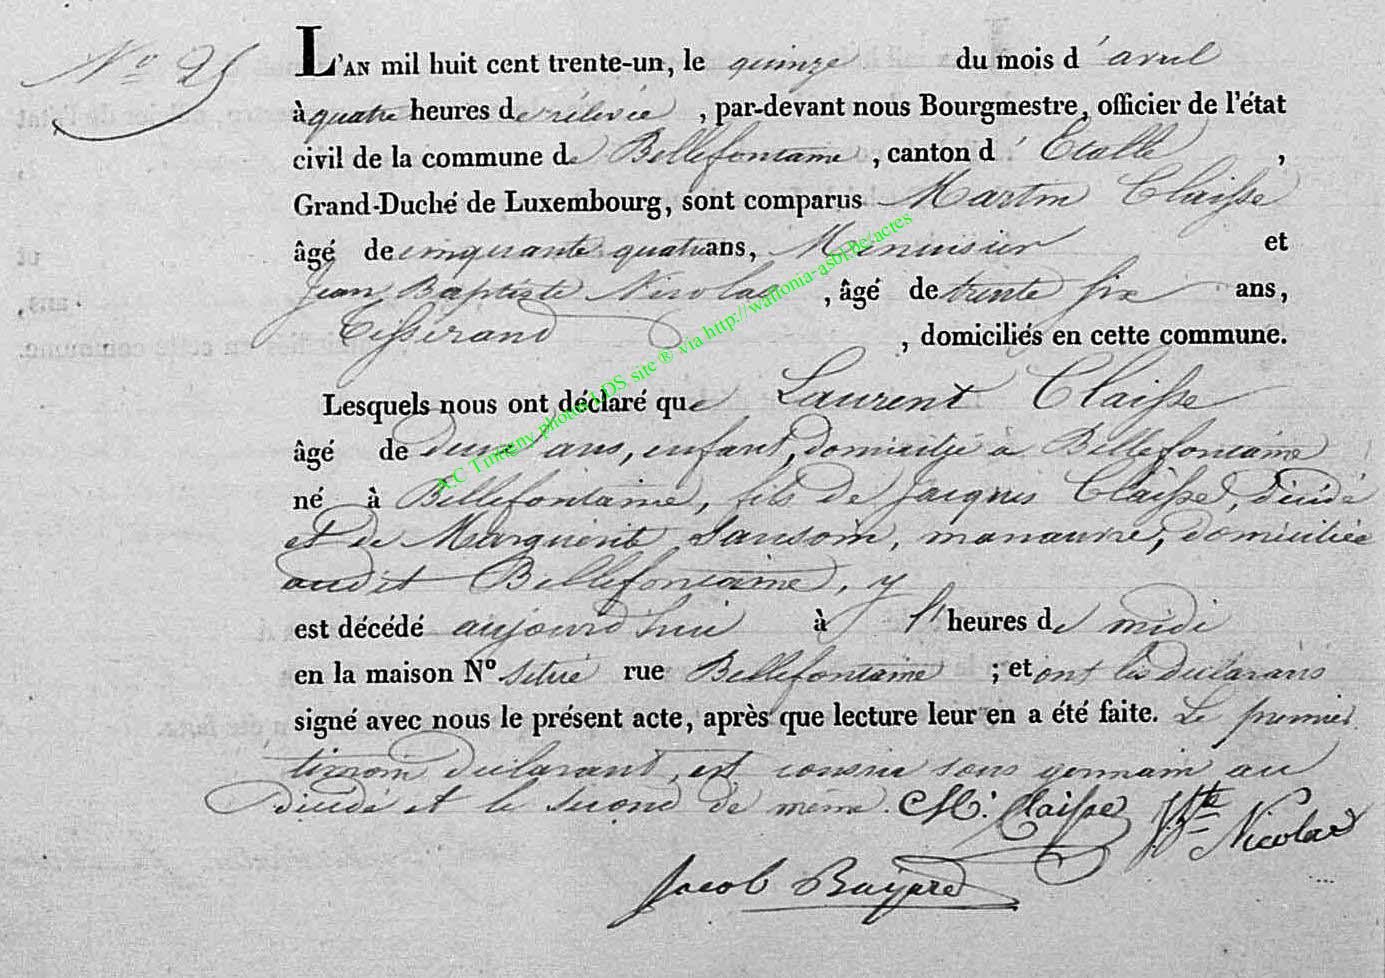 N° 25
L'AN mil huit cent trente-un, le quinze du mois d'avril
à quatre heures de rélévée, par-devant nous Bourgmestre, officier de l'état
civil de la commune de Bellefontaine, canton d'Etalle,
Grand-Duché de Luxembourg, sont comparus Martin Claisse
âgé de cinquante quatre ans, Menuisier et
Jean Baptiste Nicolas, âgé de trente six ans,
Tisserand, domiciliés en cette commune.
Lesquels nous ont déclaré que Laurent Claisse
âgé de deux ans, enfant, domicilié à Bellefontaine
né à Bellefontaine, fils de Jacques Claisse, décédé
et de Marguerite Sansoin, manauvre, domiciliée
audit Bellefontaine, y
est décédé aujourd'hui à heures de midi
en la maison N° située rue Bellefontaine ; et ont les déclarans
signé avec nous le présent acte, après que lecture leur en a été faite. Le premier
témoin déclarant, est cousin sous germain au
décédé et le second de même. M. Claisse JBte Nicolas
Jacob Bayard
A.C Tintigny photos LDS site ® via http://wallonia-asbl.be/actes